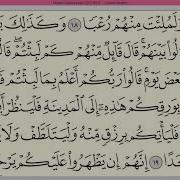 لَمُلِئْتَ مِنْهُمْ رُعْبًا ١٨ وَكَذَٰلِكَ
لُوا۟ بَيْنَهُمْ ۚ قَالَ قَآئِلٌ مِّنْهُمْ كَمْ لَبِثْتُمْ ۖ
بَعْضَ يَوْمٍ ۚ قَالُوا۟ رَبُّكُمْ أَعْلَمُ بِمَا لَبِثْتُمْ
بِوَرِقِكُمْ هَٰذِهِۦٓ إِلَى ٱلْمَدِينَةِ فَلْيَنظُرْ
فَلْيَأْتِكُم بِرِزْقٍ مِّنْهُ وَلْيَتَلَطَّفْ وَلَا
١٩ إِنَّهُمْ إِن يَظْهَرُوا۟ عَلَيْكُمْ يَرْجُ